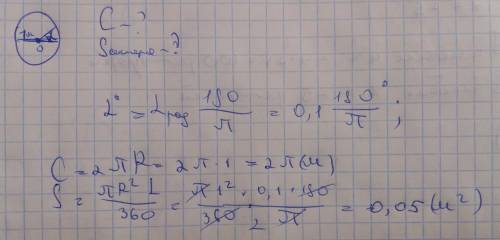 1м α
O
C - ?
Sсектора - ?
α° = αрад 180/π = 0,1 180°/π ;
C = 2πR = 2π · 1 = 2π (м)
S = πR² α/360 = π1² · 0,1 · 180/360 2 π = 0,05 (м²)